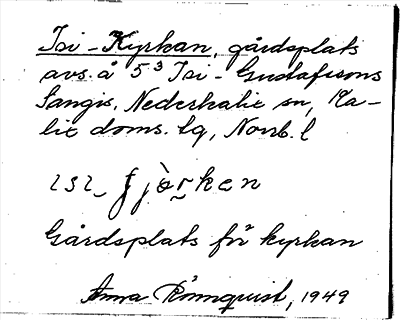 Isi-Kyrkan, gårdsplats
avs. å 5³ Isi-Gustafssons
Sangis, Nederkalix sn, Ka-
lix doms. lg, Norrb. l
ısı_
Gårdsplats för kyrkan
Anna Rönnquist, 1949